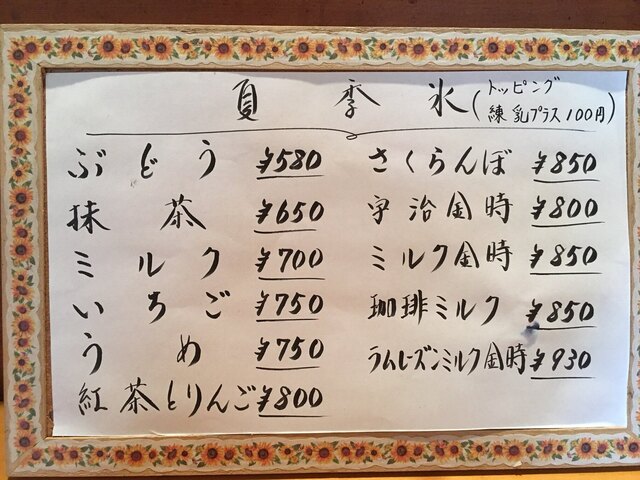 夏季氷(トッピング
練乳プラス100円)
ぶどう ¥580
抹茶 ¥650
ミルク ¥700
いちご ¥750
うめ ¥750
紅茶とりんご ¥800
さくらんぼ ¥850
宇治金時 ¥800
ミルク金時 ¥850
珈琲ミルク ¥850
ラムレーズンミルク金時 ¥930